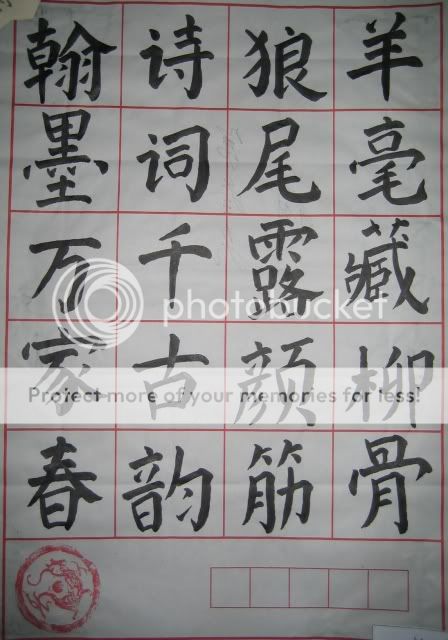 羊毫藏柳骨
狼尾露颜筋
诗词千古韵
翰墨万家春
photobucket
Protect more of your memories for less!